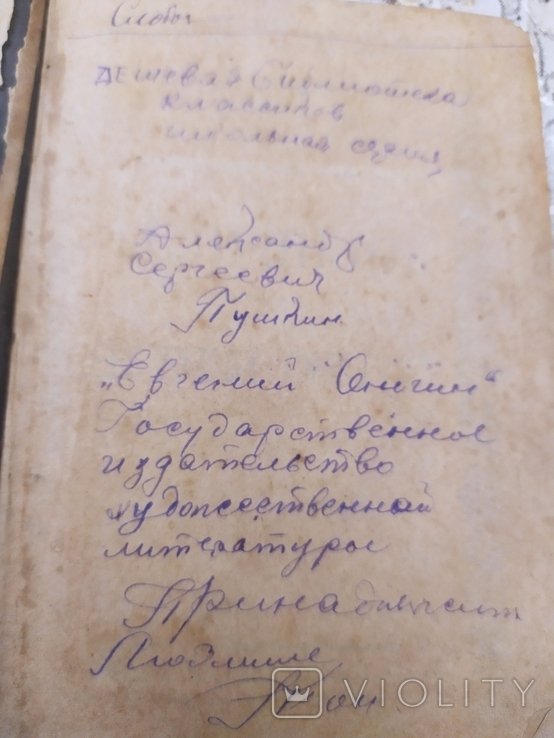 Дешевая библиотека
классиков
школьная серия,
Александр
Сергеевич
Пушкин
„Евгений "Онигин"
Государственное
издательство
художественной
литературы
Принадлежит
Людмиле
VIOLITY